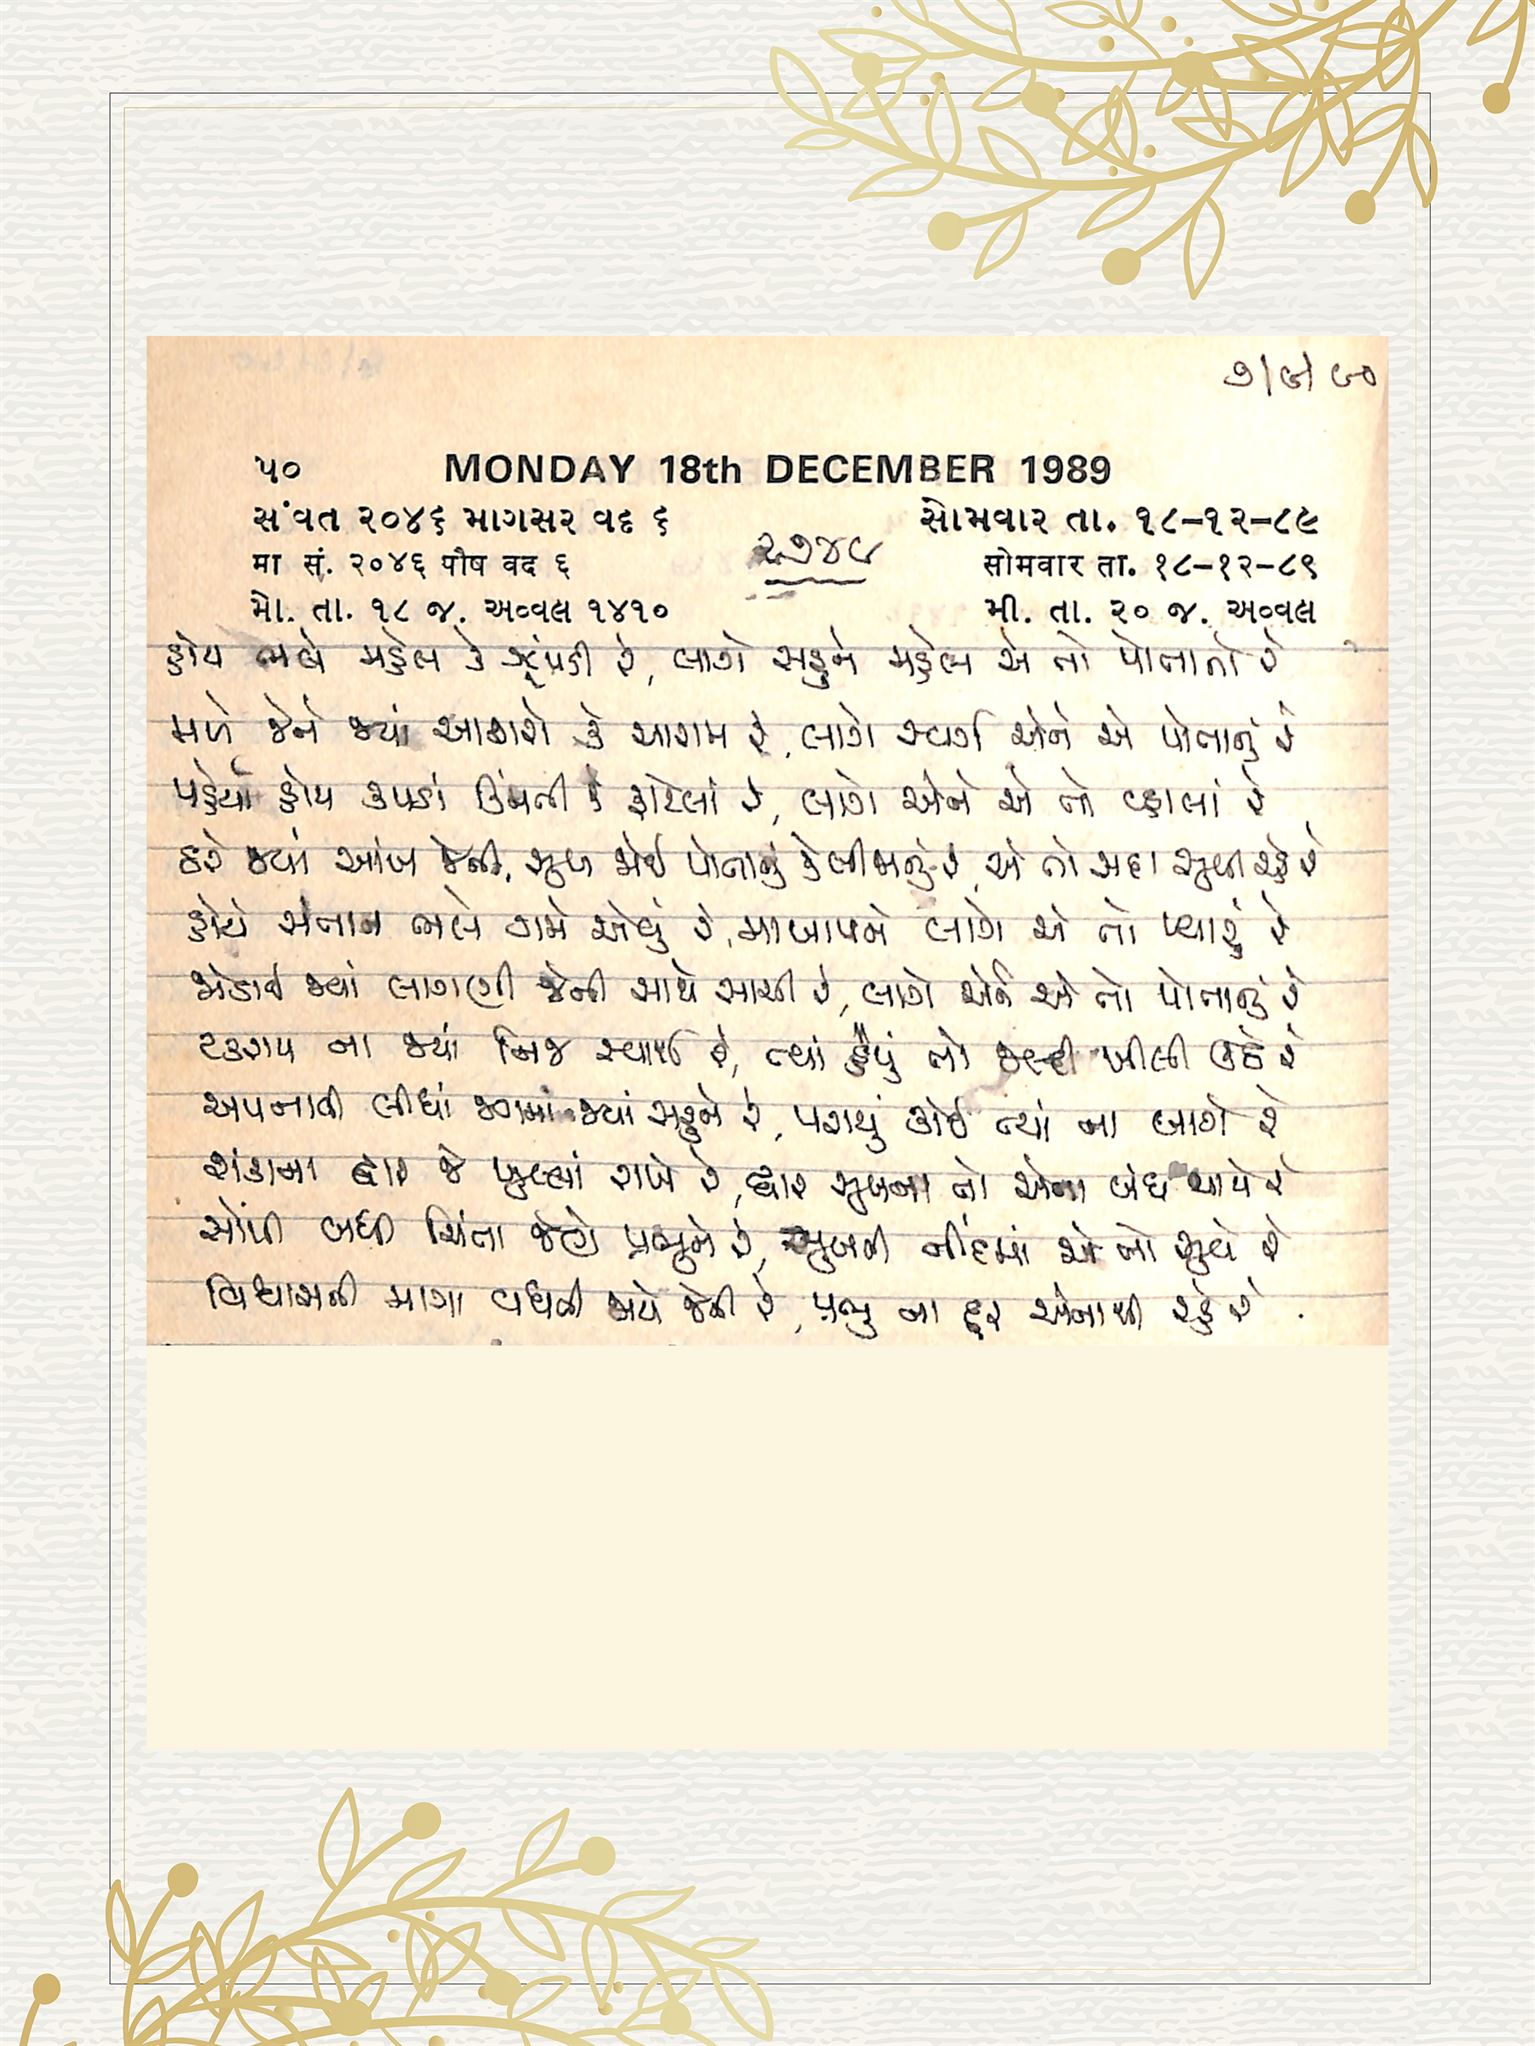 ૭/૯/૯૦
૫૦ MONDAY 18th DECEMBER 1989
સંવત ૨૦૪૬ માગસર વદ ૬ સોમવાર તા. ૧૮-૧૨-૮૯
मा सं. २०४६ पौष वद ६ सोमवार ता. १८-१२-८९
મો. તા. ૧૮ જ. અવ્વલ ૧૪૧૦ મી. તા. ૨૦ જ. અવ્વલ
૨૭૪૯
હોય ભલે મહેલ કે ઝૂંપડી રે, લાગે સહુને મહેલ એ તો પોતાનો રે
મળે જેને જ્યાં આશરો કે આરામ રે, લાગે સ્વર્ગ એને એ પોતાનું રે
પહેર્યાં હોય કપડાં ઊંચાની કે ફાટેલાં રે, લાગે એને એ તો વ્હાલાં રે
ઠરે જ્યાં આંખ જેની, સુખ જોઈ પોતાનું કે બીજાનું રે, એ તો સદા સુખી રહે રે
હોયે સંતાન ભલે ગમે એવું રે, માબાપને લાગે એ તો પ્યારું રે
જોડાઈ જ્યાં લાગણી જેની સાથે સાચી રે, લાગે એને એ તો પોતાનું રે
ટકરાય ના જ્યાં નિજ સ્વાર્થ રે, ત્યાં હૈયું તો જલ્દી ખીલી ઊઠે રે
અપનાવી લીધાં જગમાં જ્યાં સહુને રે, પરાયું કોઈ ત્યાં ના લાગે રે
શંકાના દ્વાર જે ખુલ્લાં રાખે રે, દ્વાર સુખના તો એના બંધ થાયે રે
સોંપી બધી ચિંતા જેણે પ્રભુને રે, સુખની નીંદમાં એ તો સુવે રે
વિશ્વાસની માત્રા વધતી જાયે જેની રે, પ્રભુ ના દૂર એનાથી રહે રે.